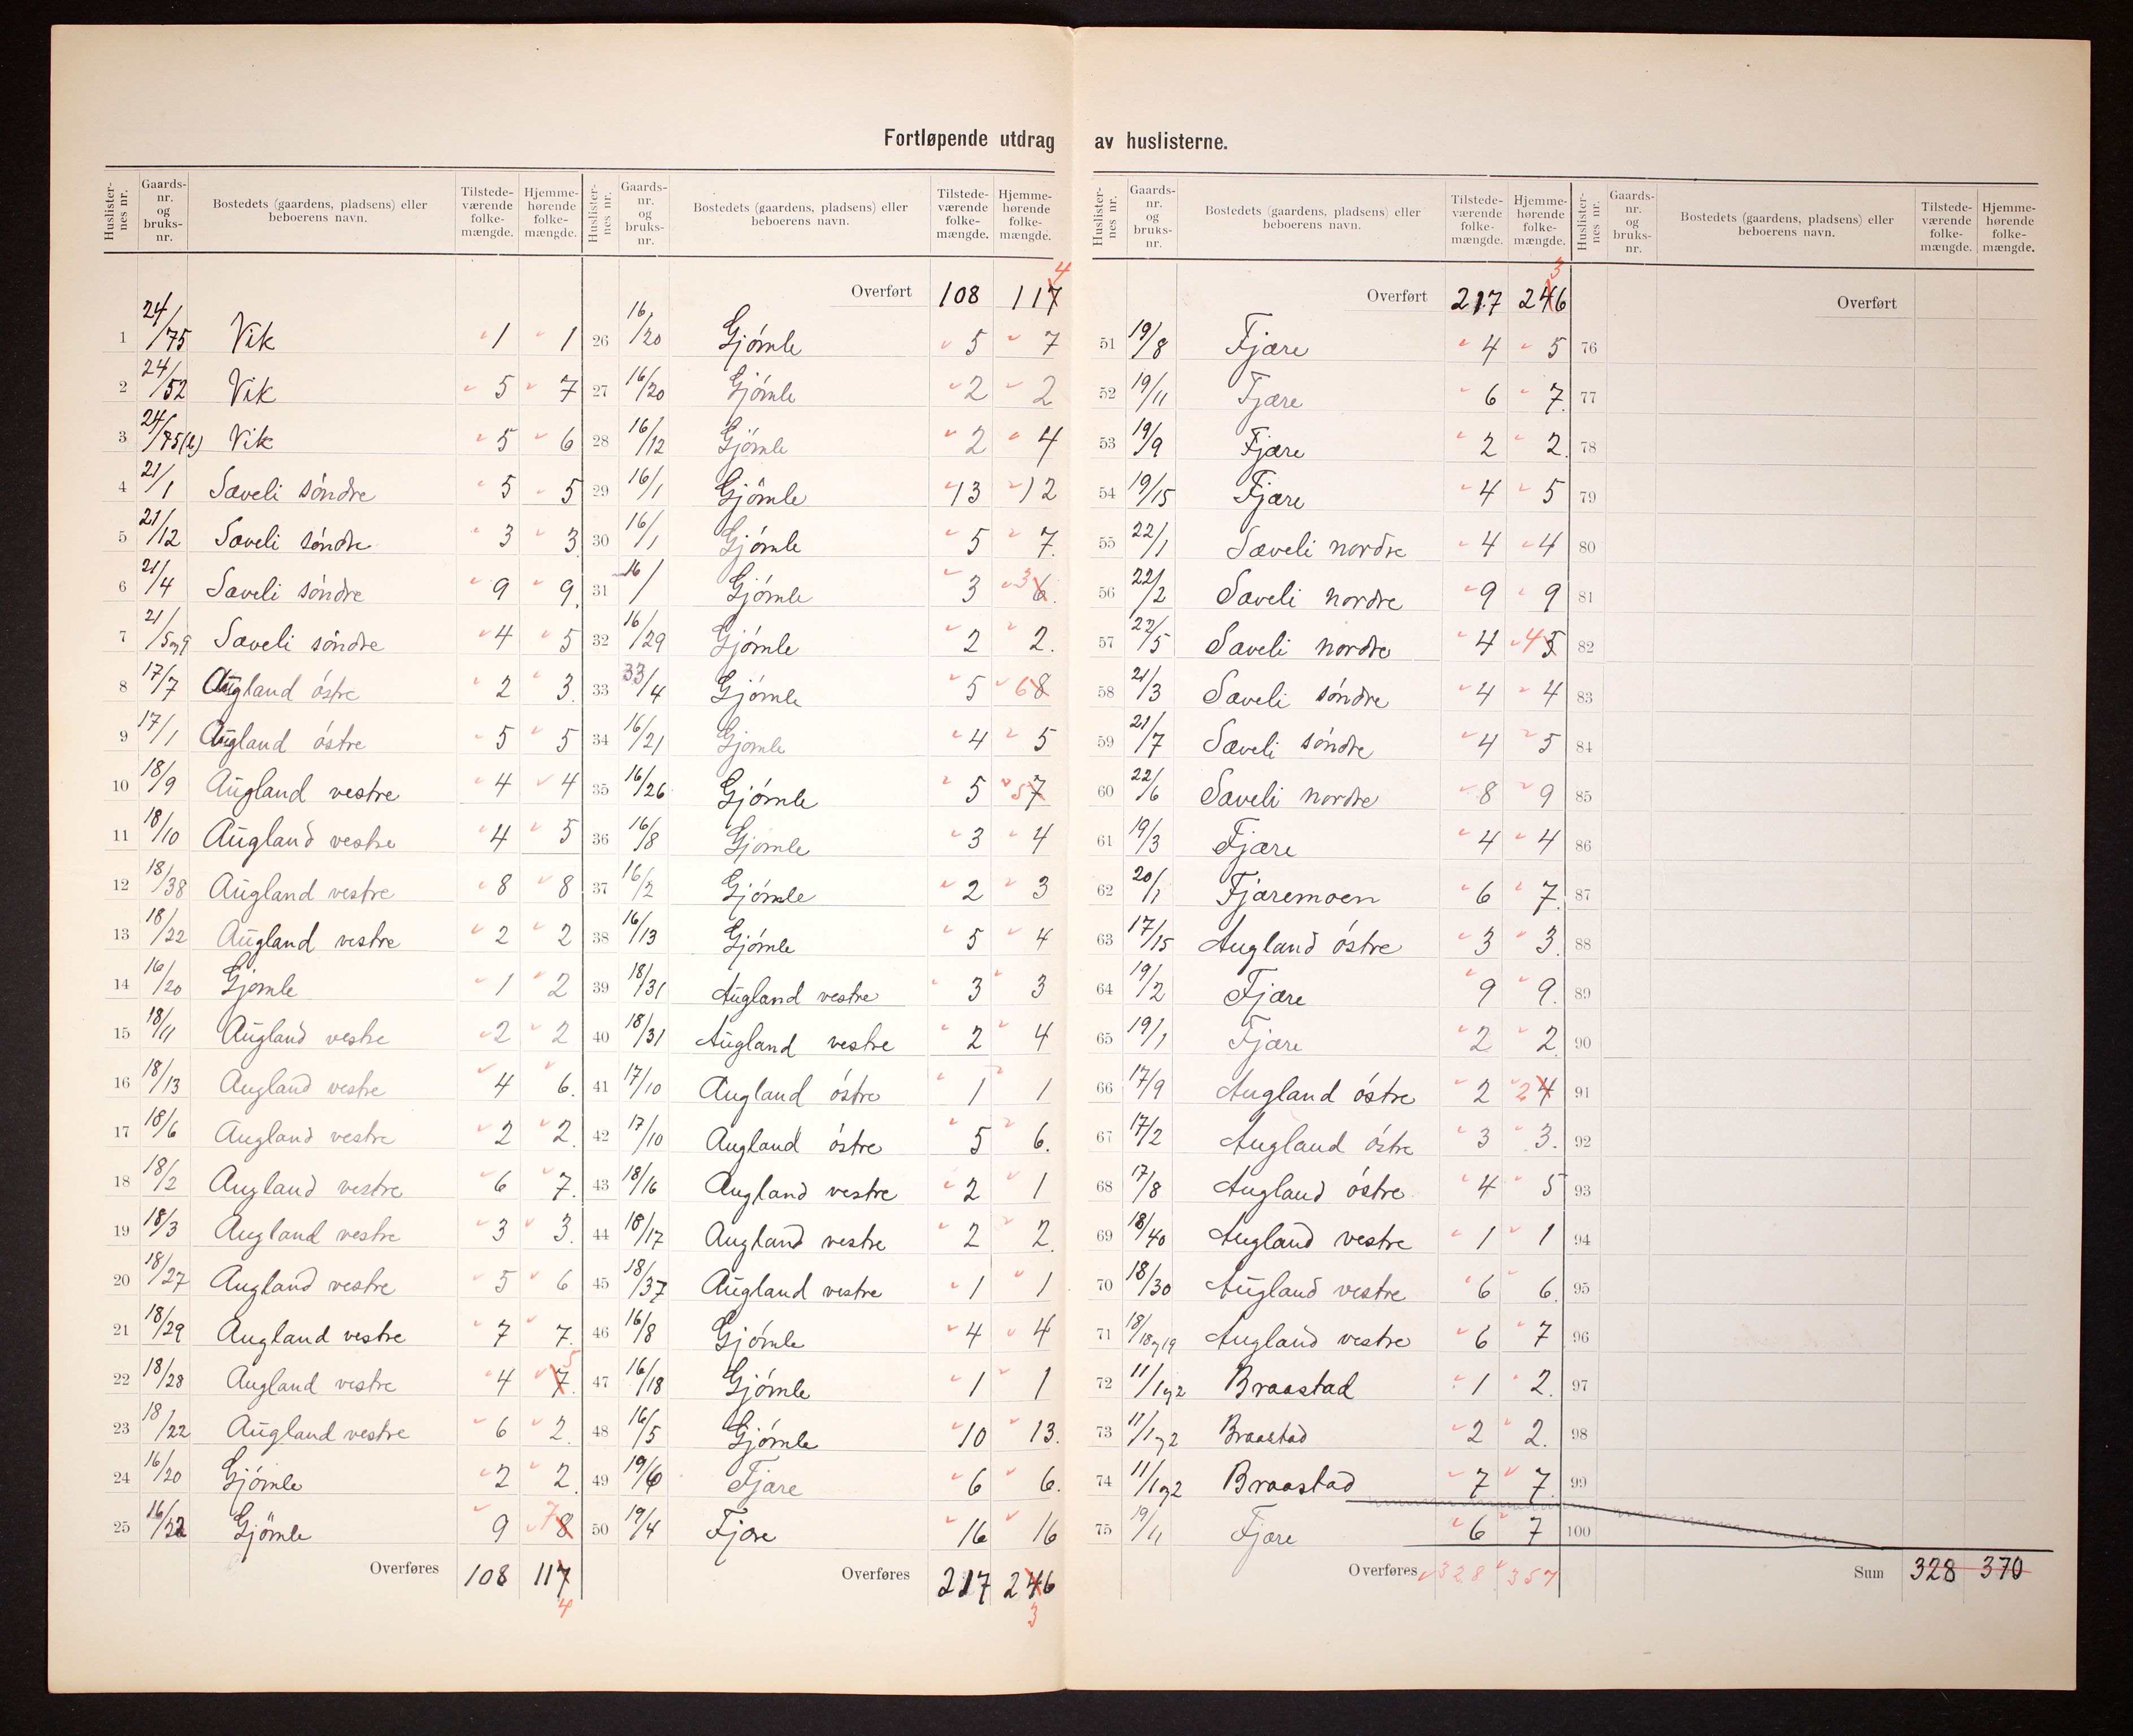 Fortløpende utdrag av huslisterne.
Huslisternes nr. Gaards-nr. og bruks-nr. Bostedets (gaardens, pladsens) eller beboerens navn. Tilstedeværende folkemængde. Hjemmehørende folkemængde.
1 24/75 Vik 1 1
2 24/52 Vik 5 7
3 24/75(b) Vik 5 6
4 21/1 Sæveli söndre 5 5
5 21/12 Sæveli söndre 3 3
6 21/4 Sæveli söndre 9 9
7 21/5og9 Sæveli söndre 4 5
8 17/7 Augland östre 2 3
9 17/1 Augland östre 5 5
10 18/9 Augland vestre 4 4
11 18/10 Augland vestre 4 5
12 18/38 Augland vestre 8 8
13 18/22 Augland vestre 2 2
14 16/20 Gjömle 1 2
15 18/11 Augland vestre 2 2
16 18/13 Augland vestre 4 6
17 18/6 Augland vestre 2 2
18 18/2 Augland vestre 6 7
19 18/3 Augland vestre 3 3
20 18/27 Augland vestre 5 6
21 18/29 Augland vestre 7 7
22 18/28 Augland vestre 4 7 5
23 18/22 Augland vestre 6 2
24 16/20 Gjömle 2 2
25 16/22 Gjömle 9 7 8
Overføres 108 117 4
Huslisternes nr. Gaards-nr. og bruks-nr. Bostedets (gaardens, pladsens) eller beboerens navn. Tilstedeværende folkemængde. Hjemmehørende folkemængde.
Overført 108 117 4
26 16/20 Gjömle 5 7
27 16/20 Gjömle 2 2
28 16/12 Gjömle 2 4
29 16/1 Gjömle 13 12
30 16/1 Gjömle 5 7
31 16/ Gjömle 3 3 6
32 16/29 Gjömle 2 2
33 33/4 Gjömle 5 6 8
34 16/21 Gjömle 4 5
35 16/26 Gjömle 5 5 7
36 16/8 Gjömle 3 4
37 16/2 Gjömle 2 3
38 16/13 Gjömle 5 4
39 18/31 Augland vestre 3 3
40 18/31 Augland vestre 2 4
41 17/10 Augland östre 1 1
42 17/10 Augland östre 5 6
43 18/16 Augland vestre 2 1
44 18/17 Augland vestre 2 2
45 18/37 Augland vestre 1 1
46 16/8 Gjömle 4 4
47 16/18 Gjömle 1 1
48 16/5 Gjömle 10 13
49 19/6 Fjære 6 6
50 19/4 Fjære 16 16
Overføres 217 246 3
Huslisternes nr. Gaards-nr. og bruks-nr. Bostedets (gaardens, pladsens) eller beboerens navn. Tilstedeværende folkemængde. Hjemmehørende folkemængde.
Overført 217 246 3
51 19/8 Fjære 4 5
52 19/11 Fjære 6 7
53 19/9 Fjære 2 2
54 19/15 Fjære 4 5
55 22/1 Sæveli nordre 4 4
56 22/2 Sæveli nordre 9 9
57 22/5 Sæveli nordre 4 4 5
58 21/3 Sæveli söndre 4 4
59 21/7 Sæveli söndre 4 5
60 22/6 Sæveli nordre 8 9
61 19/3 Fjære 4 4
62 20/1 Fjæremoen 6 7
63 17/15 Augland östre 3 3
64 19/2 Fjære 9 9
65 19/1 Fjære 2 2
66 17/9 Augland östre 2 2 4
67 17/2 Augland östre 3 3
68 17/8 Augland östre 4 5
69 18/40 Augland vestre 1 1
70 18/30 Augland vestre 6 6
71 18/18og19 Augland vestre 6 7
72 11/1og2 Braastad 1 2
73 11/1og2 Braastad 2 2
74 11/1og2 Braastad 7 7
75 19/11 Fjære 6 7
Overføres 328 357
Huslisternes nr. Gaards-nr. og bruks-nr. Bostedets (gaardens, pladsens) eller beboerens navn. Tilstedeværende folkemængde. Hjemmehørende folkemængde.
Overført
76
77
78
79
80
81
82
83
84
85
86
87
88
89
90
91
92
93
94
95
96
97
98
99
100
Sum 328 370